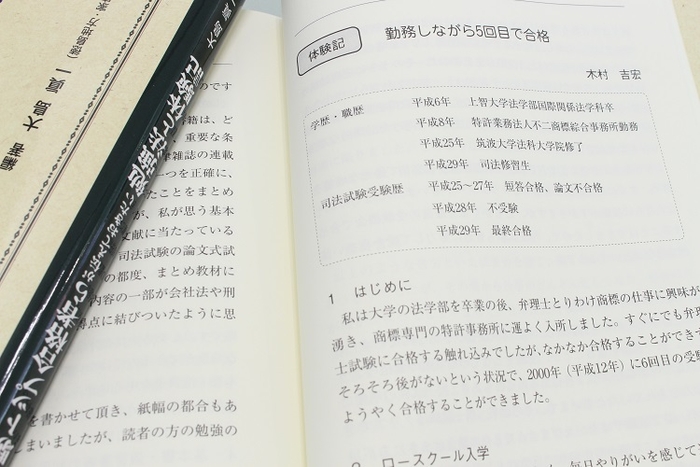 編著 大島 眞一
大島 眞一
のです
籍は、ど
重要な条
律雑誌の連載
一つを正確に、
たことをまとめ
が、私が思う基本
文献に当たっている
司法試験の論文式試
の都度、まとめ教材に
内容の一部が会社法や刑
得点に結びついたように思
を書かせて頂き、紙幅の都合もあ
まいましたが、読者の方の勉強の
体験記
勤務しながら5回目で合格
木村 吉宏
学歴・職歴
平成6年 上智大学法学部国際関係法学科卒
平成8年 特許業務法人不二商標綜合事務所勤務
平成25年 筑波大学法科大学院修了
平成29年 司法修習生
司法試験受験歴
平成25~27年 短答合格、論文不合格
平成28年 不受験
平成29年 最終合格
1 はじめに
私は大学の法学部を卒業の後、弁理士とりわけ商標の仕事に興味が
湧き、商標専門の特許事務所に運よく入所しました。すぐにでも弁理
士試験に合格する触れ込みでしたが、なかなか合格することができず
そろそろ後がないという状況で、2000年(平成12年)に6回目の受験
ようやく合格することができました。
2 ロースクール入学
毎日やりがいを感じて